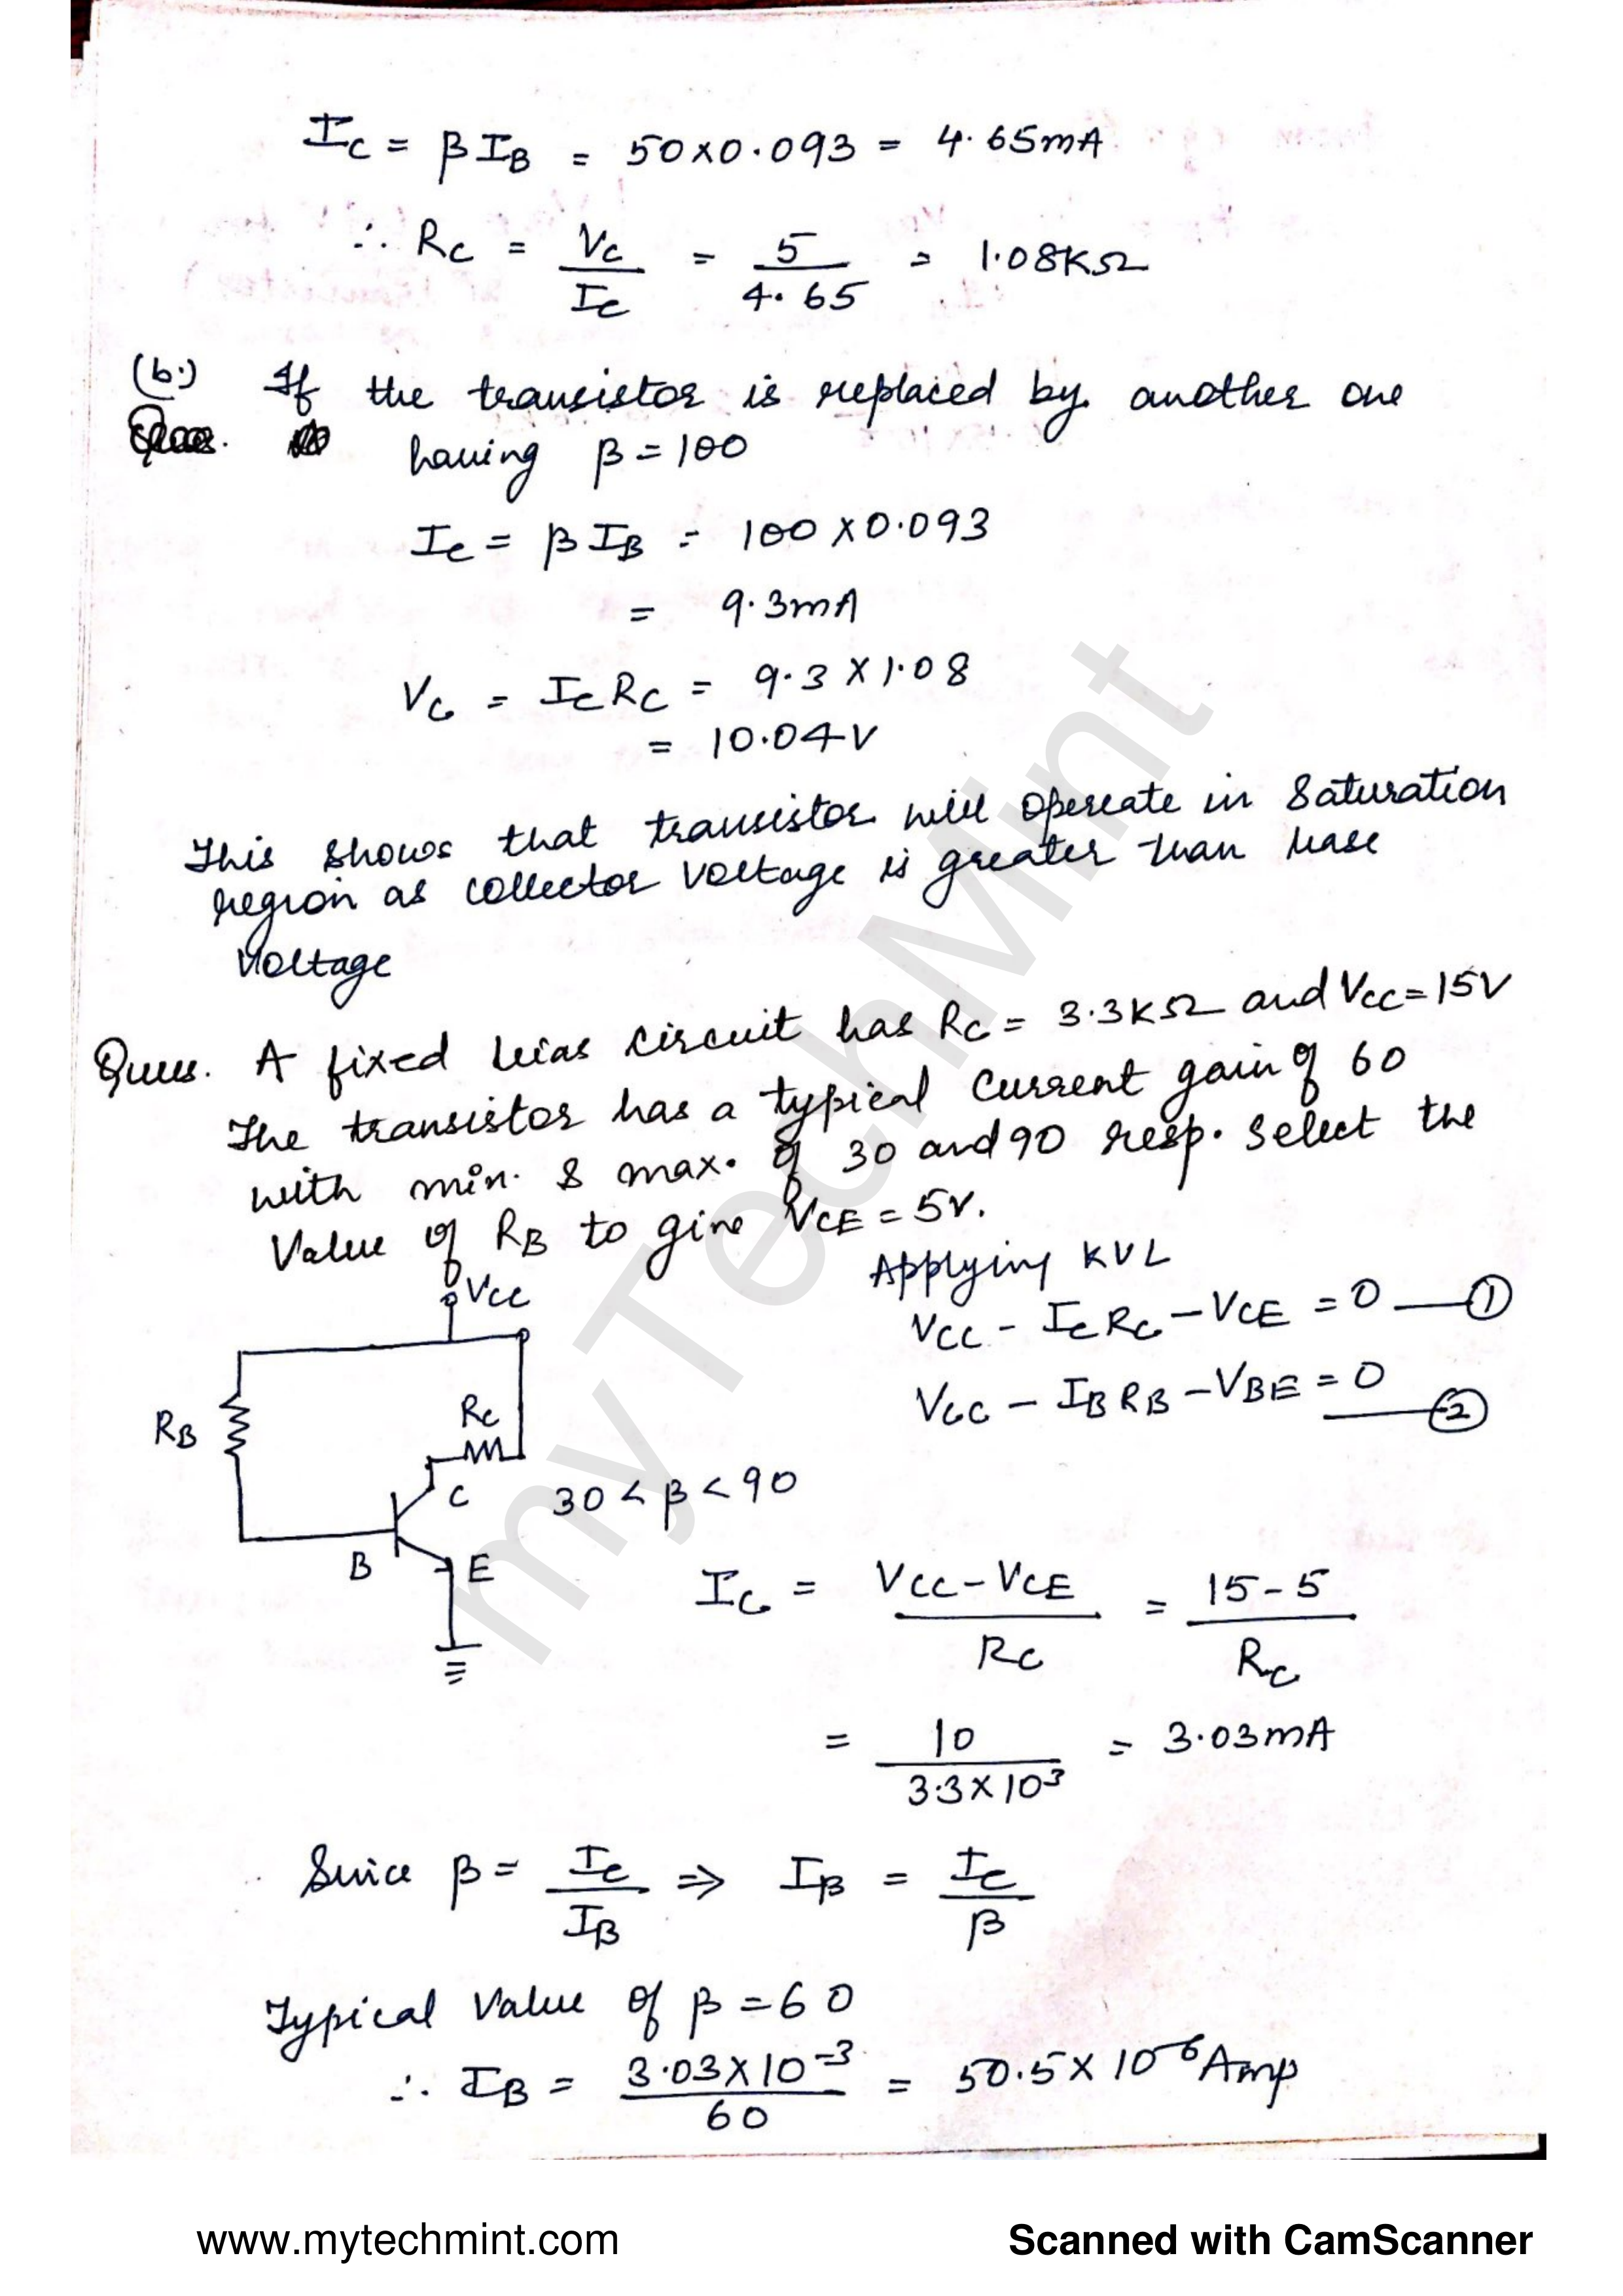 IC = βIB = 50×0.093 = 4.65mA
∴ RC = VC/IC = 5/4.65 = 1.08KΩ
(b.) If the transistor is replaced by another one
having β = 100
IC = βIB = 100 × 0.093
= 9.3mA
VC = ICRC = 9.3 × 1.08
= 10.04V
This shows that transistor will operate in saturation
region as collector voltage is greater than base
voltage
Ques. A fixed bias circuit has RC = 3.3KΩ and VCC = 15V
The transistor has a typical current gain of 60
with min. & max. of 30 and 90 resp. select the
Value of RB to give VCE = 5V.
Applying KVL
VCC - ICRC - VCE = 0 — ①
VCC - IBRB - VBE = 0 — ②
VCC
RB
RC
C
B
E
30 < β < 90
IC = VCC - VCE/RC = 15-5/RC
= 10/3.3×10³ = 3.03mA
Since β = IC/IB ⇒ IB = IC/β
Typical Value of β = 60
∴ IB = 3.03×10⁻³/60 = 50.5×10⁻⁶ Amp
myTechMint
www.mytechmint.com
Scanned with CamScanner